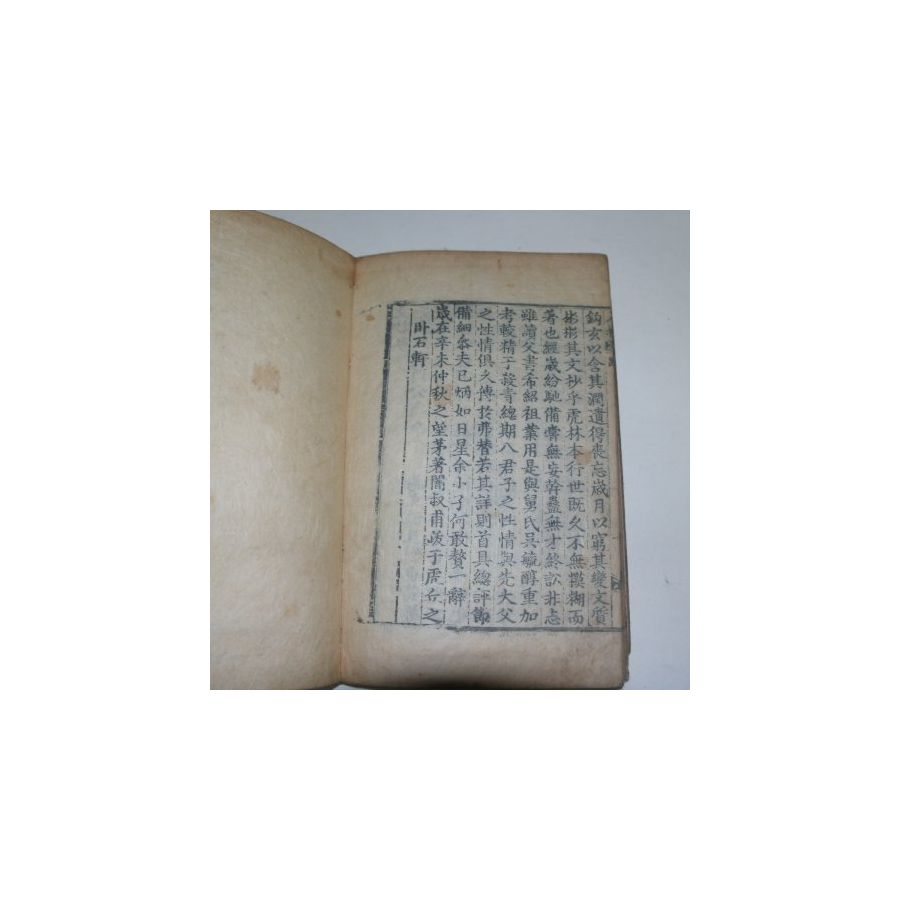 鈎玄以含其潤遺得喪忘歲月以窮其變文質
彬彬其文抄乎虎林本行世既久不無模糊而
著也經歲紛馳備嘗無安幹蠱無才終訟非忘
雖讀父書希紹祖業用是與舅氏吳毓醇重加
考較精于殺青總期八君子之性情與先大父
之性情俱久傳於弗替若其詳則首具總評節
備細忝夫已炳如日星余小子何敢贅一辭
歲在辛未仲秋之望茅著闇叔甫跋于虎丘之
卧石軒